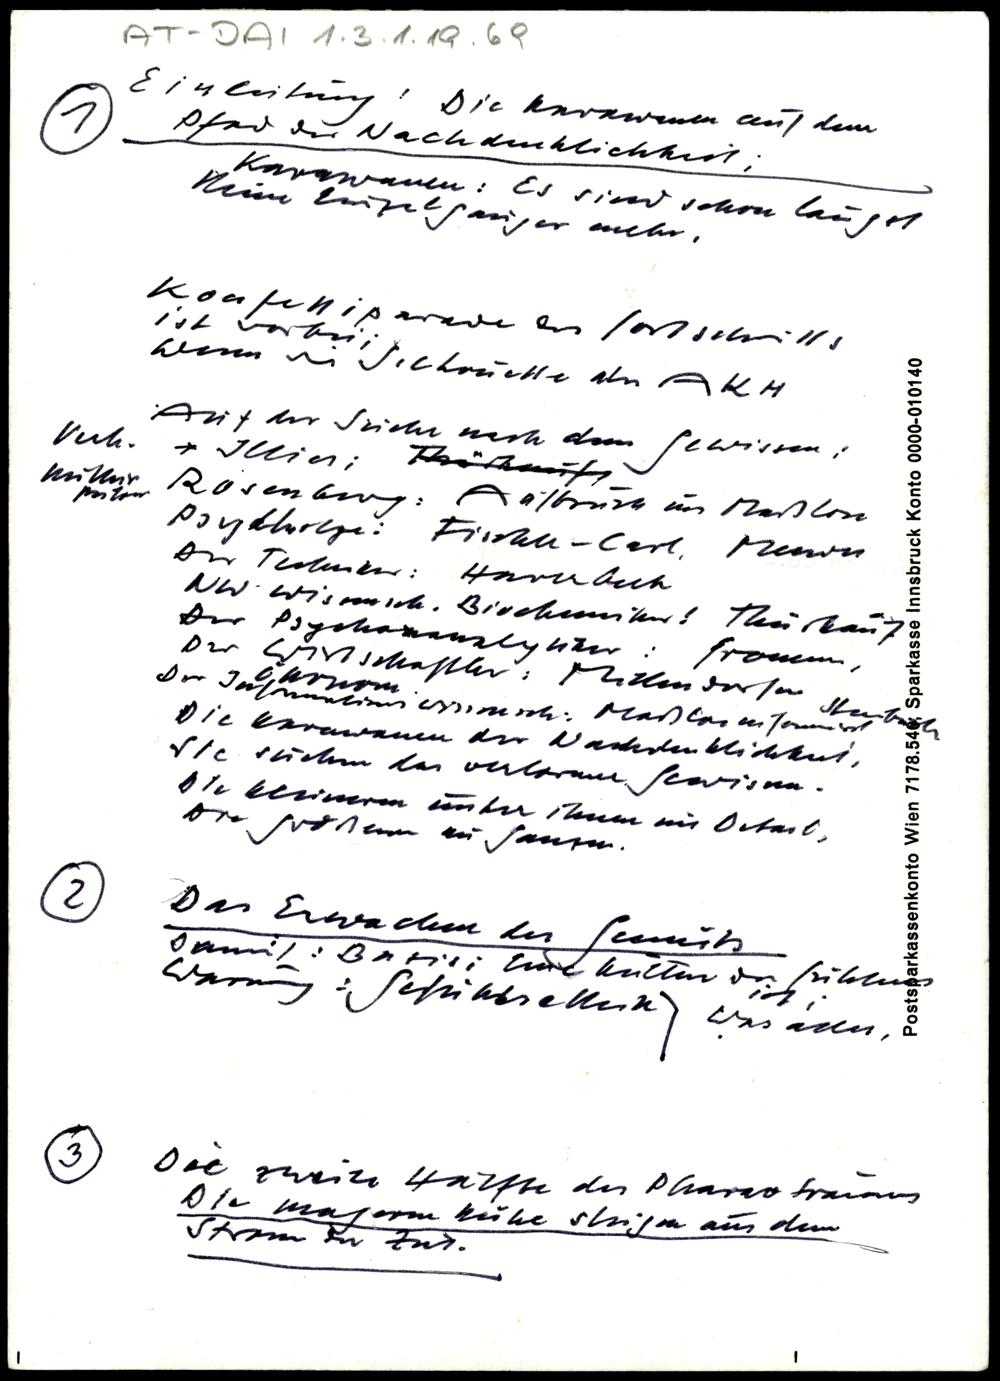 AT-DAI 1.3.1.19.69
① Einleitung! Die Karawanen auf dem
Pfad der Nachdenklichkeit;
Karawanen: Es sind schon längst
keine Einzelgänger mehr.
Konfettiparade des Fortschritts
ist vorbei;
Wenn die der AKH
Auf der Suche nach dem Gewissen:
* Illies; Thürkauf
Rosenberg: Aufbruch ins Maßlose
Psychologe: Fischle-Carl,
Der Techniker: Haverbeck
NW wissensch. Biochemiker! Thürkauf
Der Psychoanalytiker: Fromm,
Der Wirtschaftler:
Ökonom
Der Informationswissensch.: Steinbuch
Die Karawanen der Nachdenklichkeit,
Sie suchen das verlorene Gewissen.
Die kleineren unter ihnen im Detail,
die größeren im Ganzen.
② Das Erwachen des Gemüts
Damit: Basis: Eine Kultur des Fühlens
Warnung: ist;
Was alles,
③ Die zweite Hälfte des Pharao traums
Die mageren Kühe steigen aus dem
Strom der Zeit.
Postsparkassenkonto Wien 7178.540, Sparkasse Innsbruck Konto 0000-010140